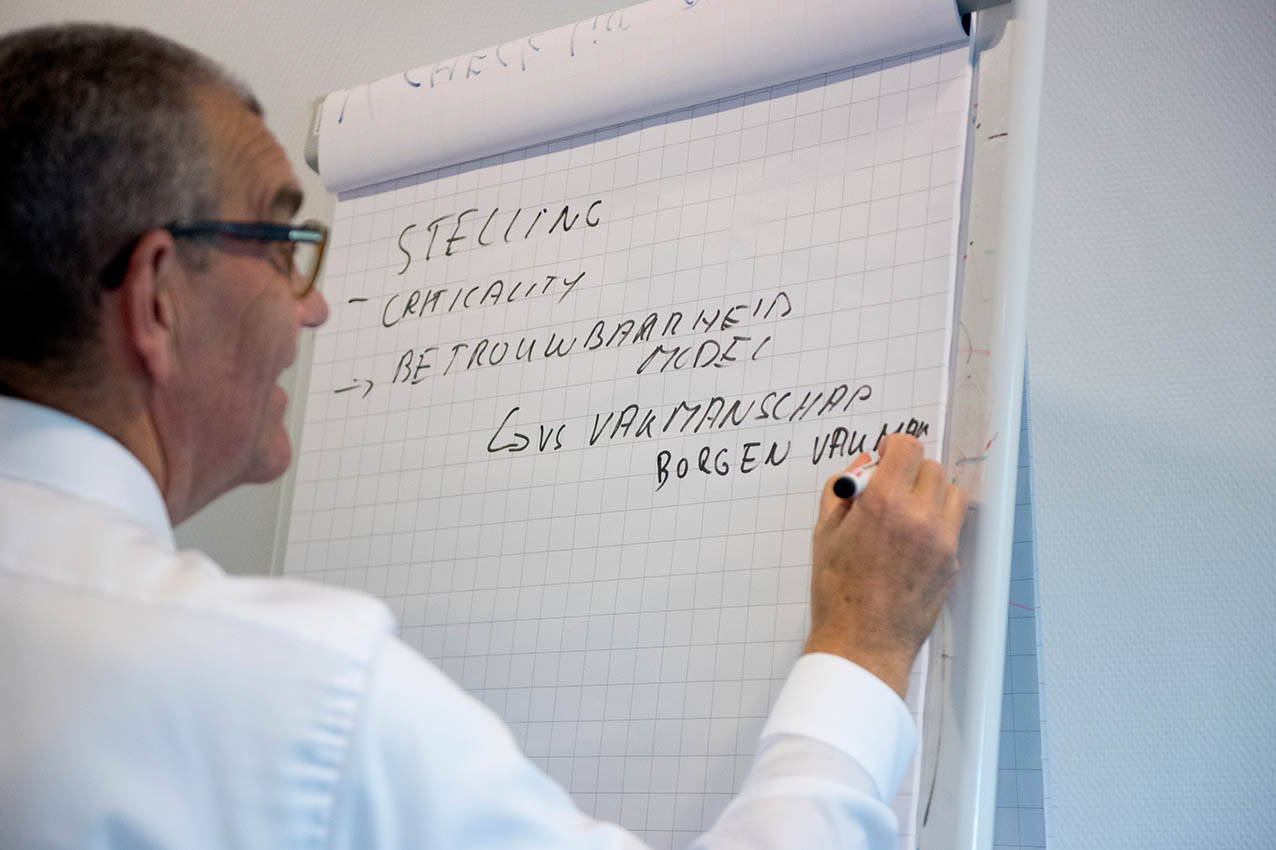 CHECK
STELLING
- CRITICALITY
→ BETROUWBAARHEID
MODEL
↳ VS VAKMANSCHAP
BORGEN VAKMAN